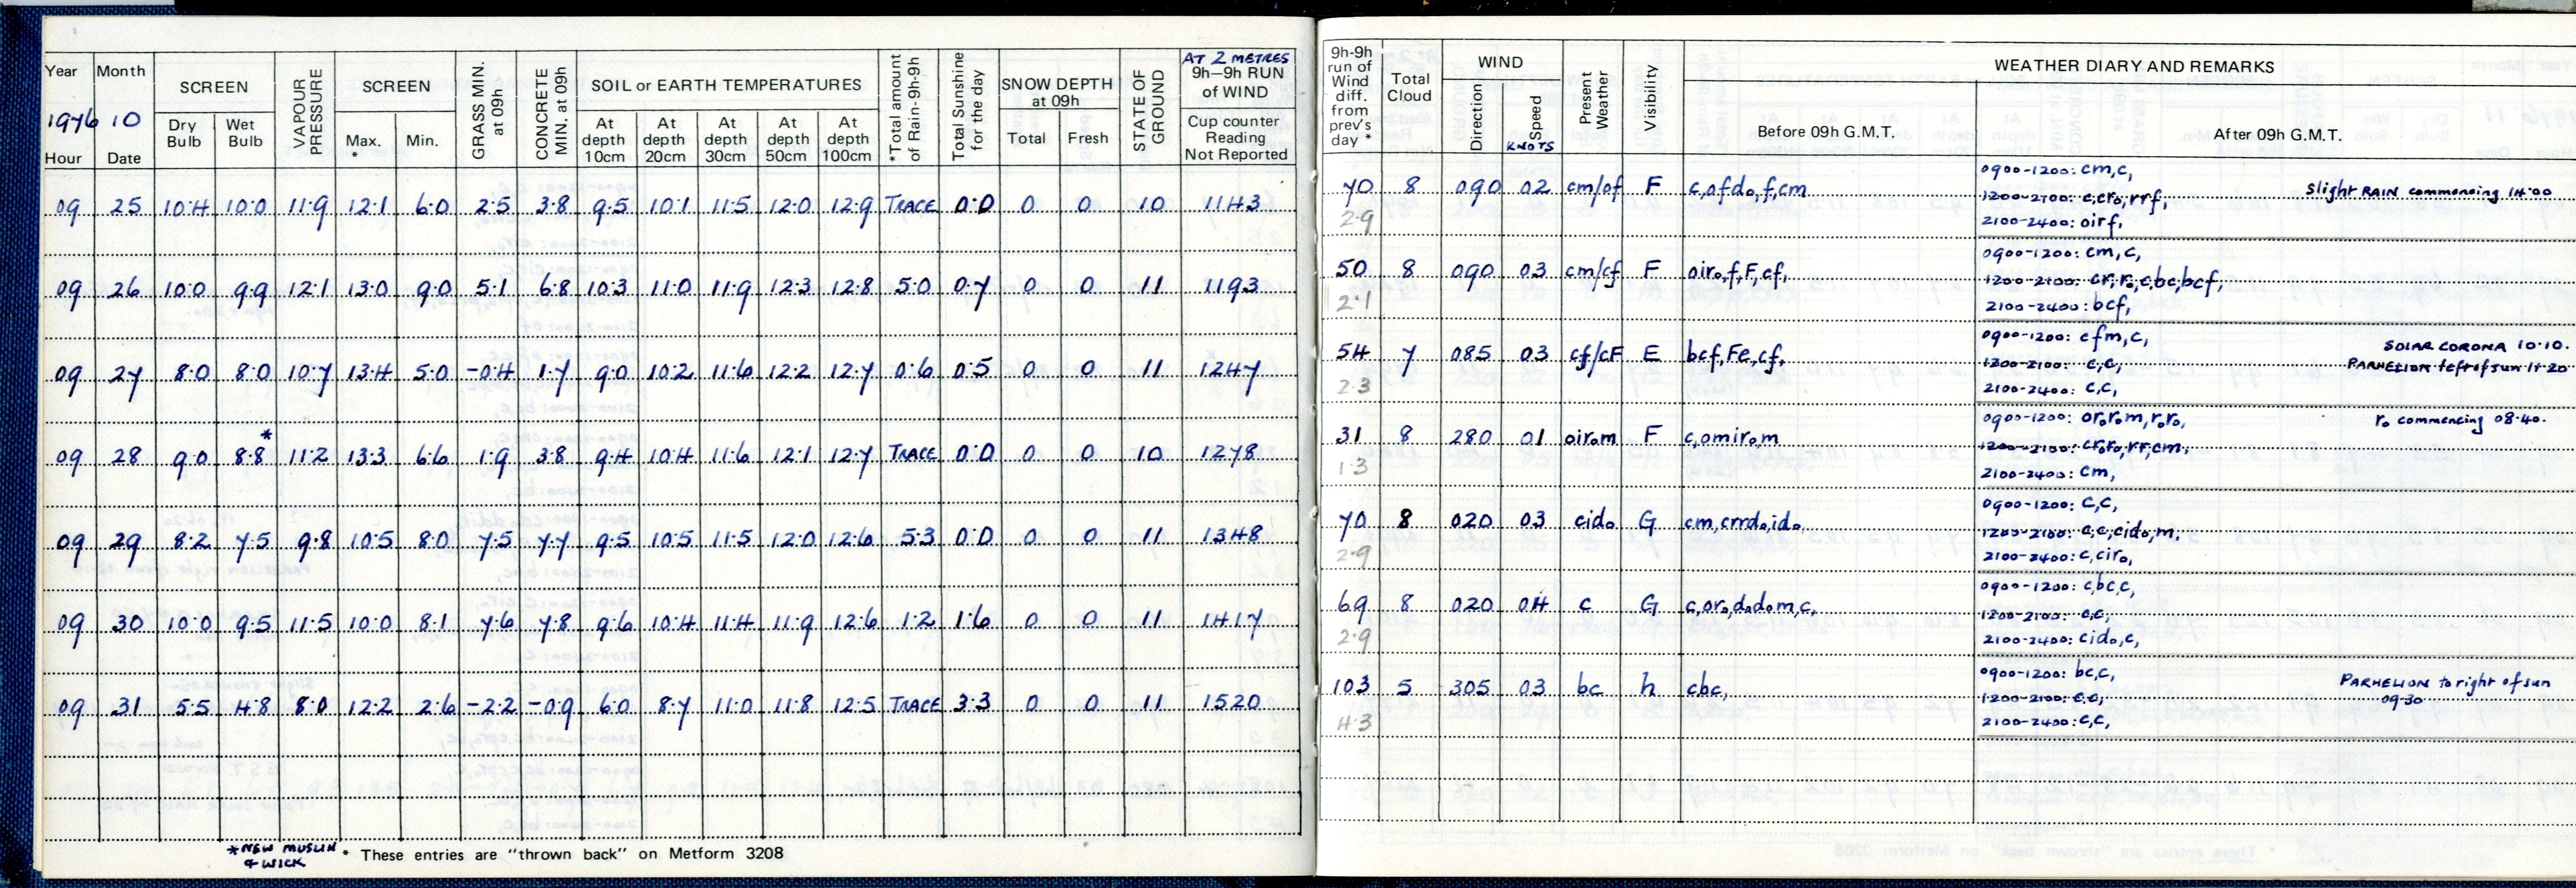 AT 2 METRES
Year Month SCREEN VAPOUR PRESSURE SCREEN GRASS MIN. at 09h CONCRETE MIN. at 09h SOIL or EARTH TEMPERATURES *Total amount of Rain-9h-9h Total Sunshine for the day SNOW DEPTH at 09h STATE OF GROUND 9h–9h RUN of WIND
1976 10
Hour Date Dry Bulb Wet Bulb Max. * Min. At depth 10cm At depth 20cm At depth 30cm At depth 50cm At depth 100cm Total Fresh Cup counter Reading Not Reported
09 25 10.4 10.0 11.9 12.1 6.0 2.5 3.8 9.5 10.1 11.5 12.0 12.9 TRACE 0.0 0 0 10 1143
09 26 10.0 9.9 12.1 13.0 9.0 5.1 6.8 10.3 11.0 11.9 12.3 12.8 5.0 0.7 0 0 11 1193
09 27 8.0 8.0 10.7 13.4 5.0 -0.4 1.7 9.0 10.2 11.6 12.2 12.7 0.6 0.5 0 0 11 1247
*
09 28 9.0 8.8 11.2 13.3 6.6 1.9 3.8 9.4 10.4 11.6 12.1 12.7 TRACE 0.0 0 0 10 1278
09 29 8.2 7.5 9.8 10.5 8.0 7.5 7.7 9.5 10.5 11.5 12.0 12.6 5.3 0.0 0 0 11 1348
09 30 10.0 9.5 11.5 10.0 8.1 7.6 7.8 9.6 10.4 11.4 11.9 12.6 1.2 1.6 0 0 11 1417
09 31 5.5 4.8 8.0 12.2 2.6 -2.2 -0.9 6.0 8.7 11.0 11.8 12.5 TRACE 3.3 0 0 11 1520
*NEW MUSLIN & WICK
* These entries are "thrown back" on Metform 3208
9h-9h run of Wind diff. from prev's day * Total Cloud WIND Present Weather Visibility WEATHER DIARY AND REMARKS
Direction Speed KNOTS Before 09h G.M.T. After 09h G.M.T.
0900-1200: cm,c,
70 8 090 02 cm/of F c,ofd₀,f,cm Slight RAIN commencing 14.00
1200-2100: c,cr₀,rrf,
2.9 2100-2400: oirf,
0900-1200: cm,c,
50 8 090 03 cm/cf F oir₀,f,F,cf,
1200-2100: cr,r₀,c,bc,bcf,
2.1 2100-2400: bcf,
0900-1200: cfm,c,
54 7 085 03 cf/cF E bcf,Fe,cf, SOLAR CORONA 10.10.
1200-2100: c,c, PARHELION left of sun 11.20
2.3 2100-2400: c,c,
0900-1200: or₀r₀m,r₀r₀, r₀ commencing 08.40.
31 8 280 01 oir₀m F c,omir₀m
1200-2100: cr₀r₀,rr,cm,
1.3 2100-2400: cm,
0900-1200: c,c,
70 8 020 03 cid₀ G cm,crrd₀,id₀,
1200-2100: c,c,cid₀,m,
2.9 2100-2400: c,cir₀,
0900-1200: c,bc,c,
69 8 020 04 c G c,or₀,d₀d₀m,c,
1200-2100: c,c,
2.9 2100-2400: cid₀,c,
0900-1200: bc,c,
103 5 305 03 bc h cbc, PARHELION to right of sun
1200-2100: c,c, 09.30
4.3 2100-2400: c,c,